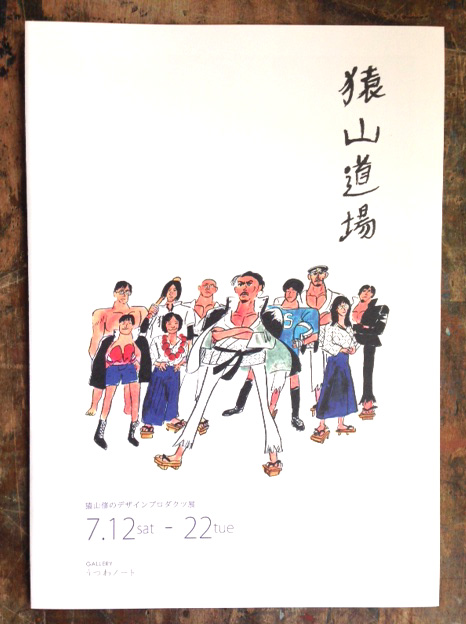 猿山道場
猿山修のデザインプロダクツ展
7.12sat - 22tue
GALLERY
うつわノート
S